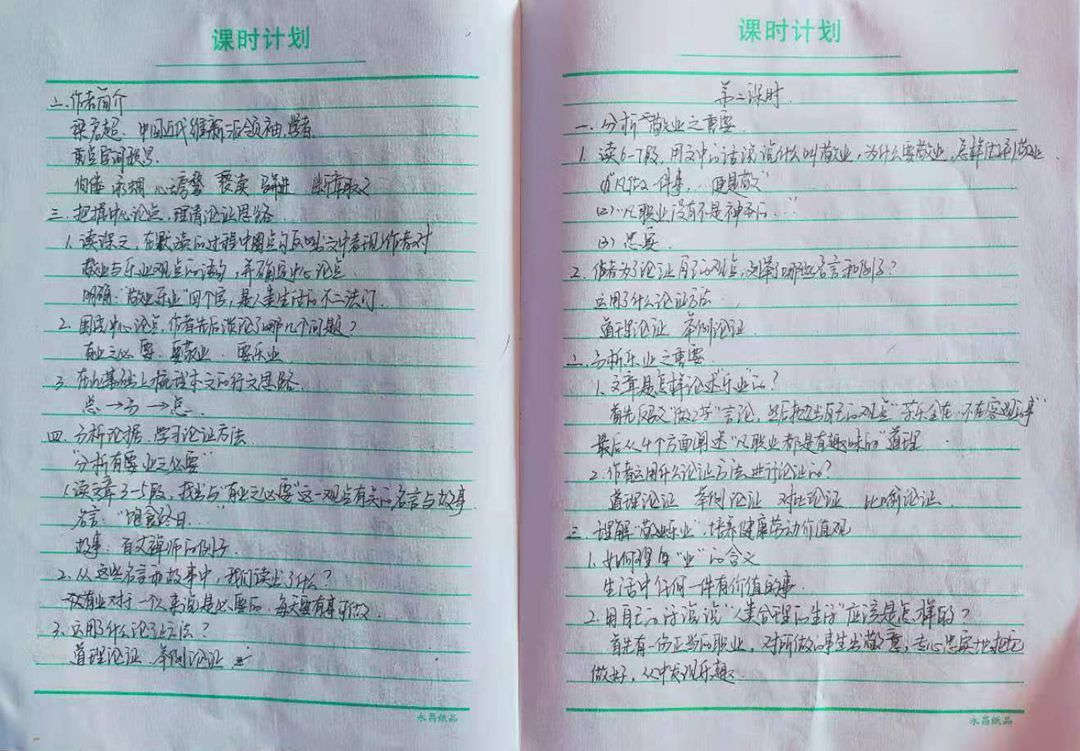 课时计划
二.作者简介
梁启超、中国近代维新派领袖、学者.
三.把握中心论点,理清论证思路.
1.读课文,在默读的过程中圈点勾画出文中表现作者对
敬业与乐业观点的语句,并确定中心论点
明确:"敬业乐业"四个字,是人类生活的不二法门.
2.围绕中心论点,作者先后谈论了哪几个问题?
有业之必要 要敬业 要乐业
3.在此基础上梳理本文的行文思路.
总→分→总.
四.分析论据,学习论证方法
"分析有业之必要"
1.读文章3-5段,找出与"有业之必要"这一观点有关的名言与故事
名言:"饱食终日..."
故事:百丈禅师的例子.
2.从这些名言和故事中,我们读出了什么?
有业对于一个人来说是必要的,每天要有事可做.
3.运用了什么论证方法?
道理论证 举例论证
永昌纸品
课时计划
第二课时
一.分析"敬业之重要
1.读6-7段,用文中的话说说什么叫敬业,为什么要敬业,怎样做到敬业
(1)"凡做一件事,...便是敬"
(2)"凡职业没有不是神圣的..."
(3)忠实
2.作者为了论证自己的观点,列举了哪些名言和例子?
运用了什么论证方法
道理论证 举例论证
二.分析乐业之重要
1.文章是怎样论述"乐业"的?
首先反驳"做工苦"言论,然后提出自己的观点"苦乐全在 不在客观的事"
最后从4个方面阐述"凡职业都是有趣味的"道理.
2.作者运用什么论证方法进行论证的?
道理论证 举例论证 对比论证 比喻论证.
三.理解"敬业乐业",培养健康劳动价值观
1.如何理解"业"的含义
生活中任何一件有价值的事.
2.用自己的话说说"人类合理的生活"应该是怎样的?
首先有一份正当的职业,对所做的事生出敬意,专心忠实地把它
做好,从中发现乐趣.
永昌纸品